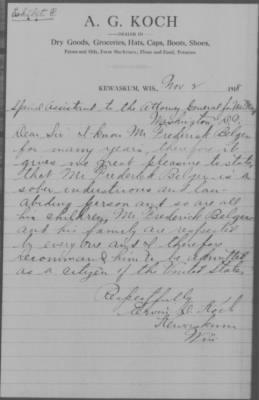 Exhibit B
A. G. KOCH
DEALER IN
Dry Goods, Groceries, Hats, Caps, Boots, Shoes,
Paints and Oils, Farm Machinery, Flour and Feed, Potatoes
KEWASKUM, WIS., Nov 2 1918
Special Assistant to the Attorney General for
Washington D.C.
Dear Sir - I know Mr. Frederick Belger
for many years, therefore it
gives me great pleasure to state
that Mr. Frederick Belger is a
sober industrious and law-
abiding person and so are all
his children, Mr. Frederick Belger
and his family are respected
by every one and I therefore
recommend him to be admitted
as a citizen of the United States
Respectfully
Erwin Koch
Kewaskum
Wis